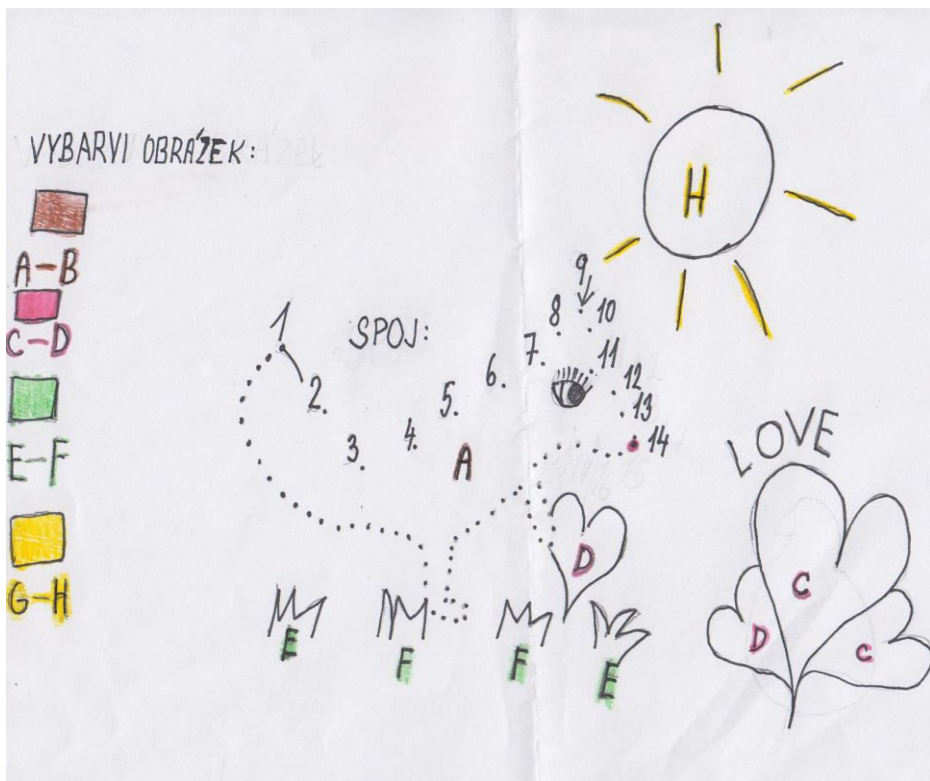 VYBARVI OBRÁZEK:
A-B
C-D
E-F
G-H
H
SPOJ:
1
2.
3.
4.
5.
6.
7.
8
9
10
11
12
13
14
A
LOVE
D
C
D
C
E
F
F
E